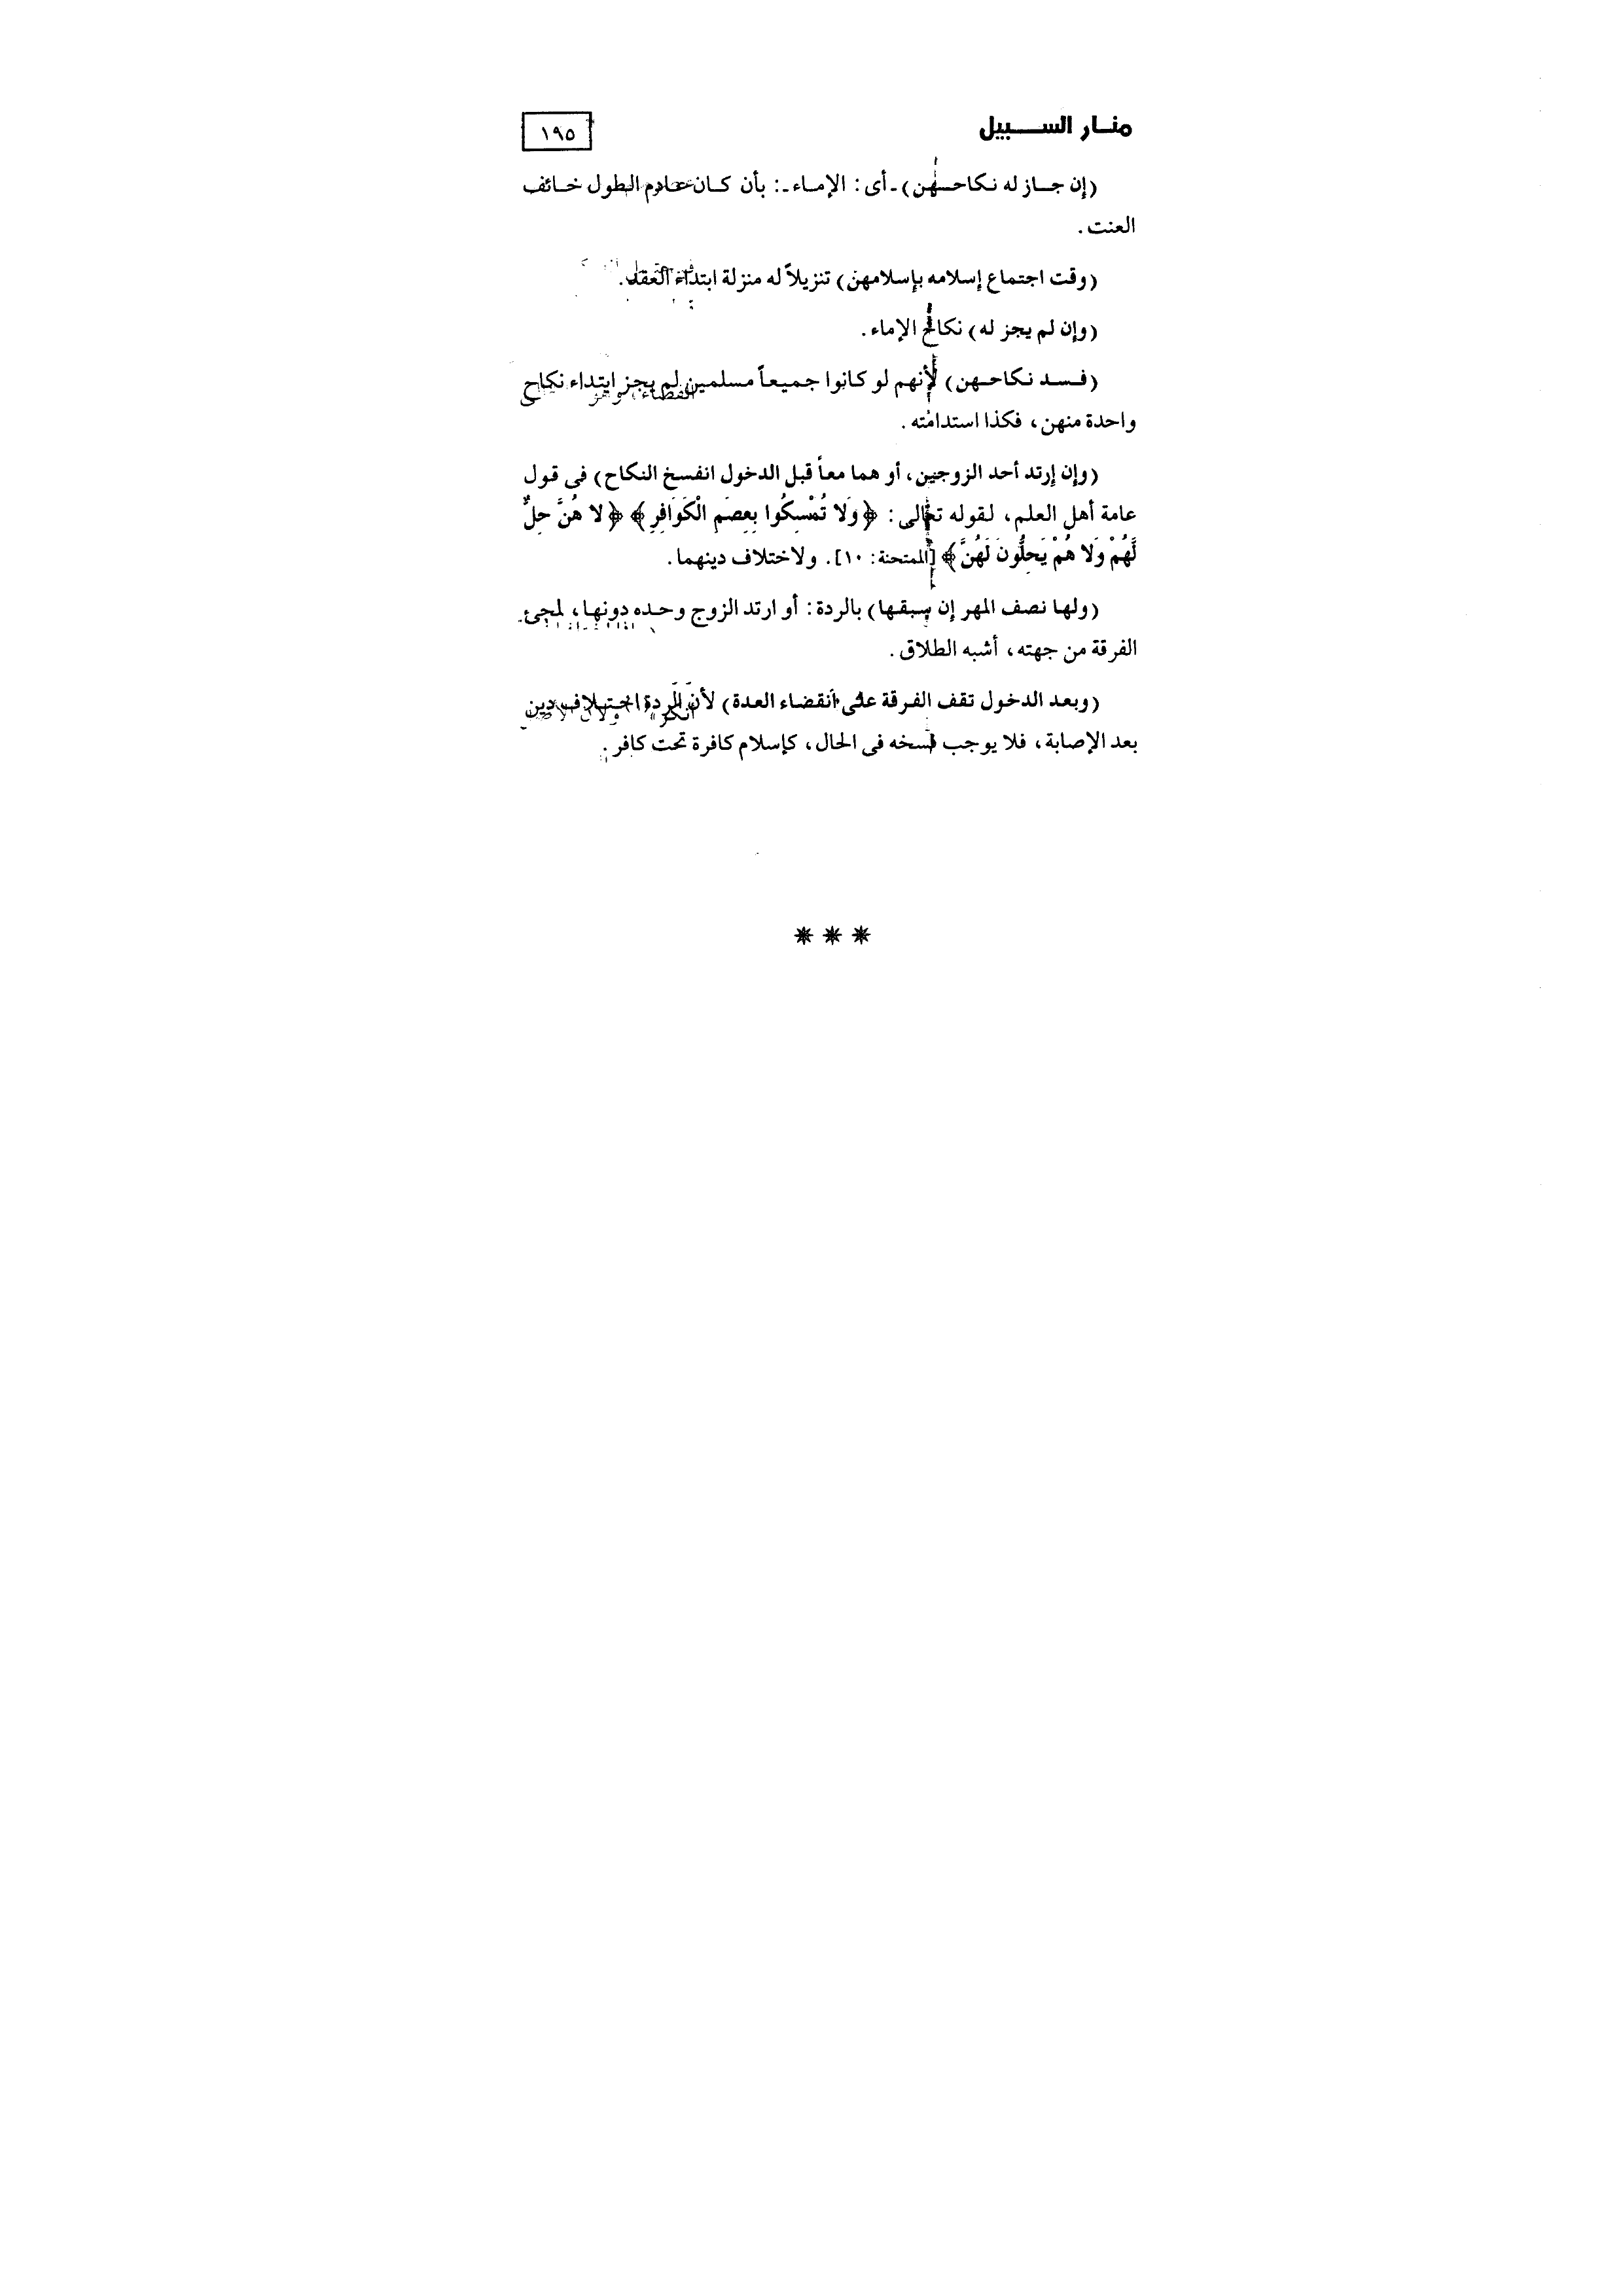 منار السبيل
١٩٥
(إن جاز له نكاحهن) ـ أى: الإماء ـ: بأن كان عادم الطول خائف
العنت.
(وقت اجتماع إسلامه بإسلامهن) تنزيلاً له منزلة ابتداء العقد.
(وإن لم يجز له) نكاح الإماء.
(فسد نكاحهن) لأنهم لو كانوا جميعاً مسلمين لم يجز ابتداء نكاح
واحدة منهن، فكذا استدامته.
(وإن إرتد أحد الزوجين، أو هما معاً قبل الدخول انفسخ النكاح) فى قول
عامة أهل العلم، لقوله تعالى: ﴿وَلا تُمْسِكُوا بِعِصَمِ الْكَوَافِرِ﴾ ﴿لا هُنَّ حِلٌّ
لَّهُمْ وَلا هُمْ يَحِلُّونَ لَهُنَّ﴾ [الممتحنة: ١٠]. ولاختلاف دينهما.
(ولها نصف المهر إن سبقها) بالردة: أو ارتد الزوج وحده دونها، لمجئ
الفرقة من جهته، أشبه الطلاق.
(وبعد الدخول تقف الفرقة على انقضاء العدة) لأن الردة اختلاف دين
بعد الإصابة، فلا يوجب فسخه فى الحال، كإسلام كافرة تحت كافر.